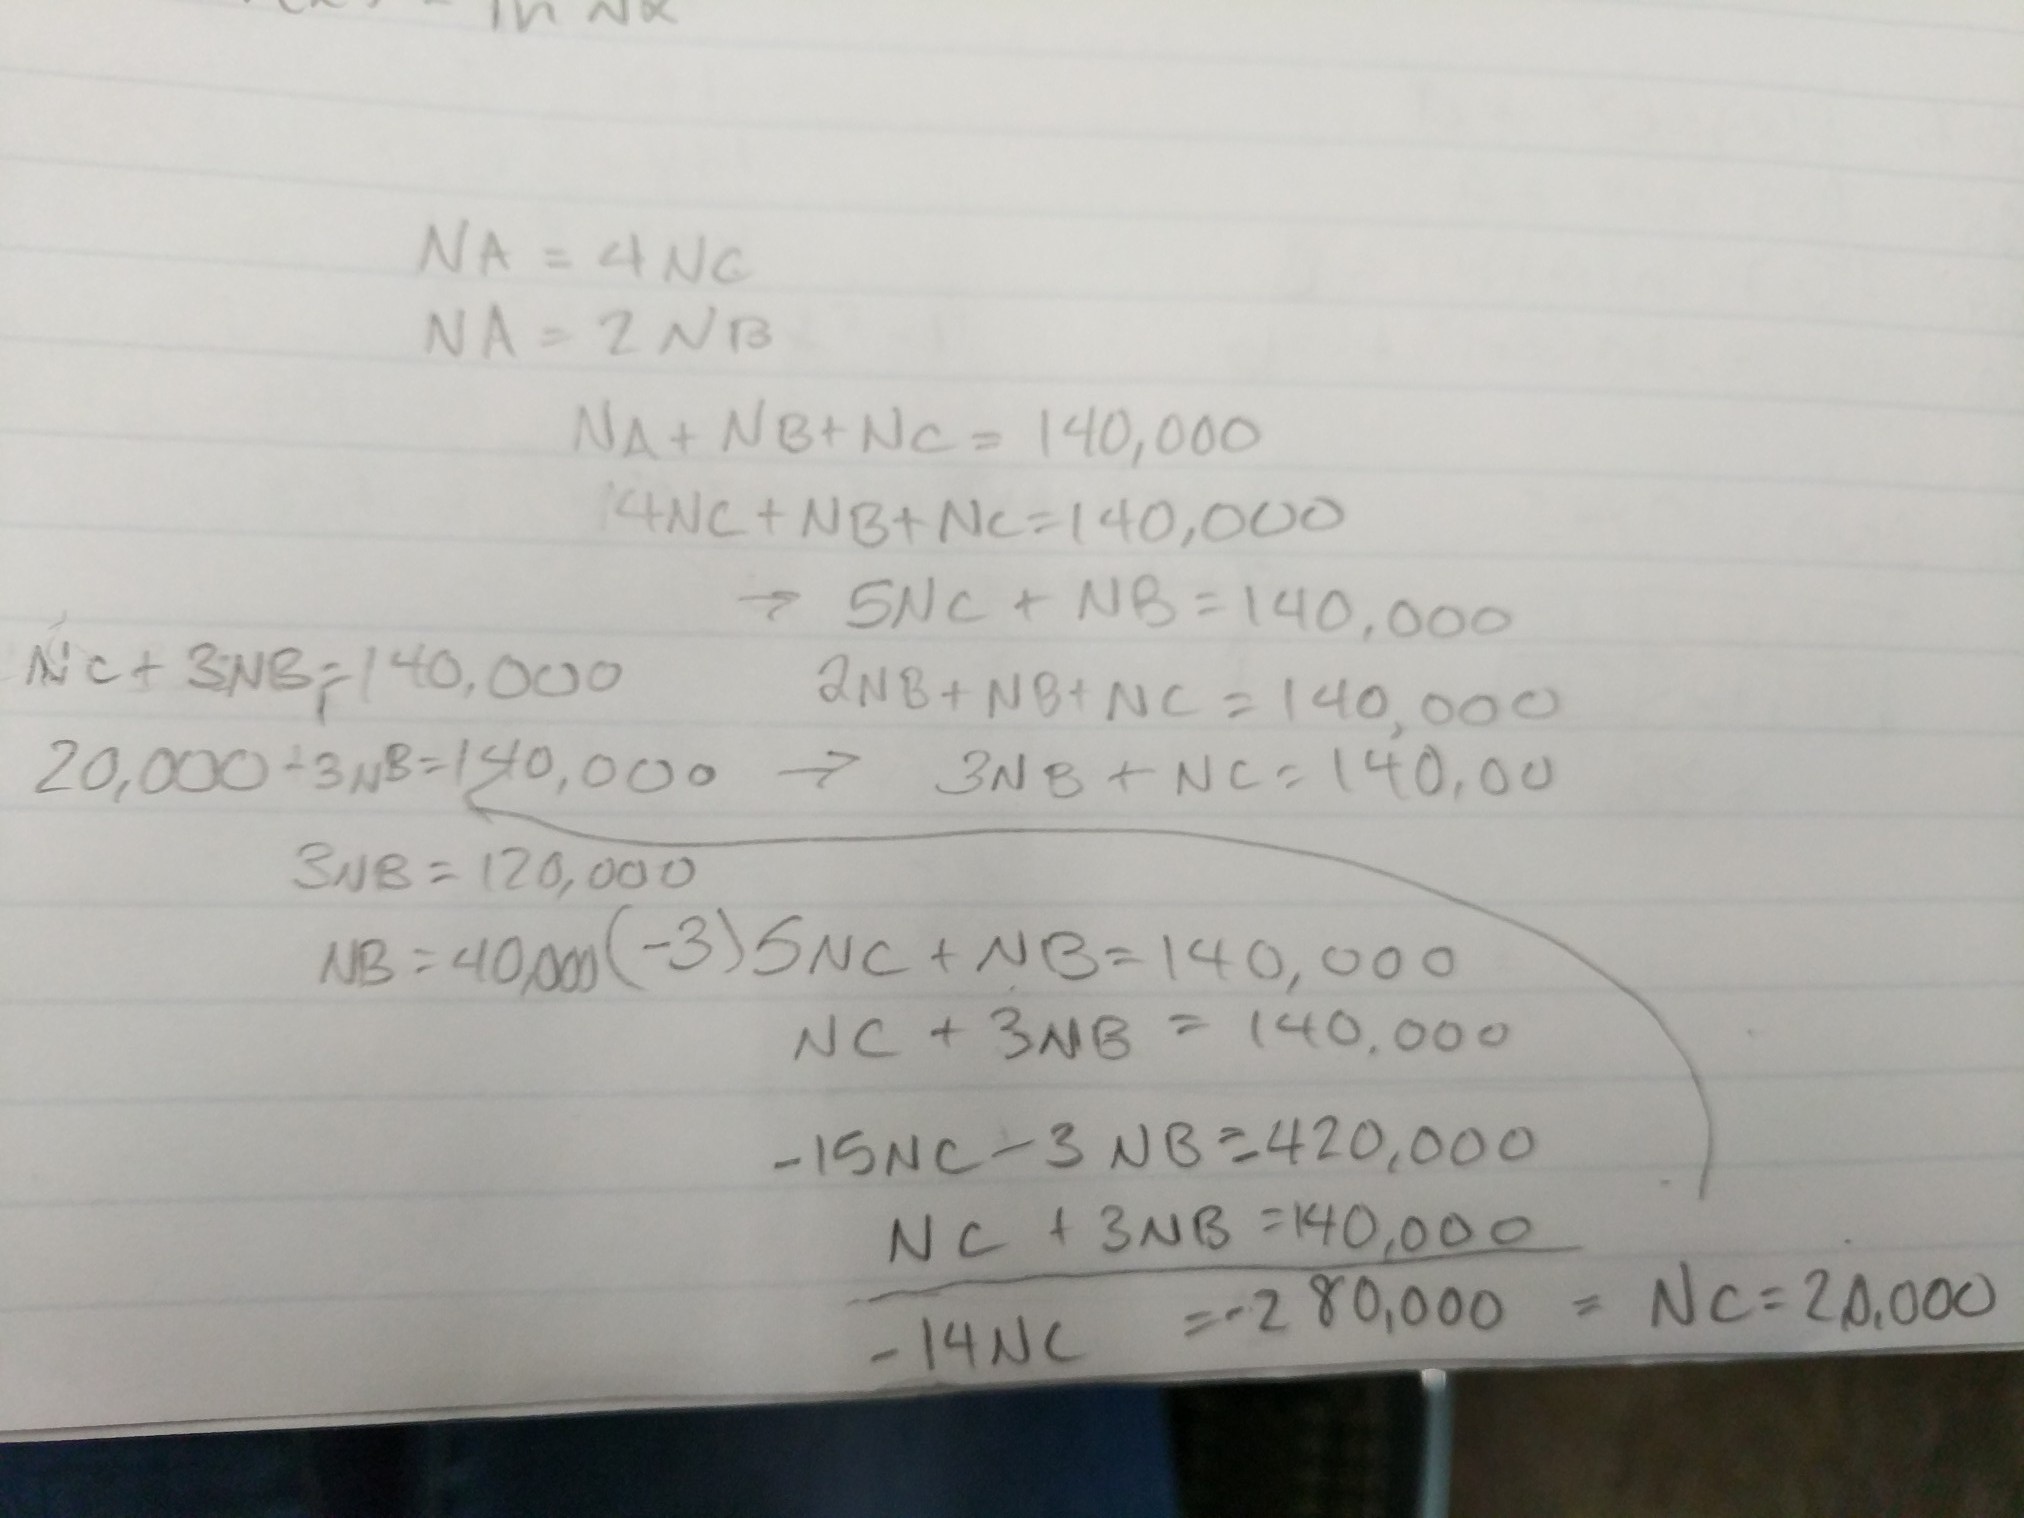 NA = 4NC
NA = 2NB
NA + NB + NC = 140,000
4NC + NB + NC = 140,000
→ 5NC + NB = 140,000
NC + 3NB = 140,000
2NB + NB + NC = 140,000
20,000 + 3NB = 140,000
→ 3NB + NC = 140,00
3NB = 120,000
NB = 40,000
(-3) 5NC + NB = 140,000
NC + 3NB = 140,000
-15NC - 3NB = -420,000
NC + 3NB = 140,000
-14NC = -280,000 = NC = 20,000